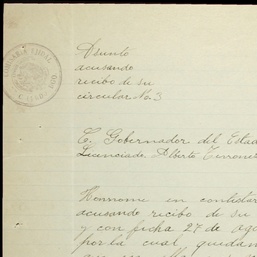 Asunto
acusando
recibo de su
circular No. 3
C. Gobernador del Estad
Licenciado Alberto Terrones
Honrome en contestar
acusando recibo de su
y con fecha 27 de ago
por la cual quedam